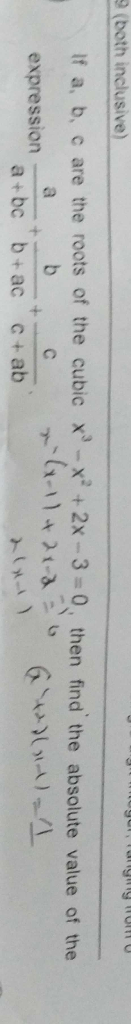 9 (both inclusive)
If a, b, c are the roots of the cubic x³ – x² + 2x – 3 = 0, then find the absolute value of the
expression a/(a + bc) + b/(b + ac) + c/(c + ab).
x²(x-1) + 2x-2 = 1
(x²+2)(x-1) = 1